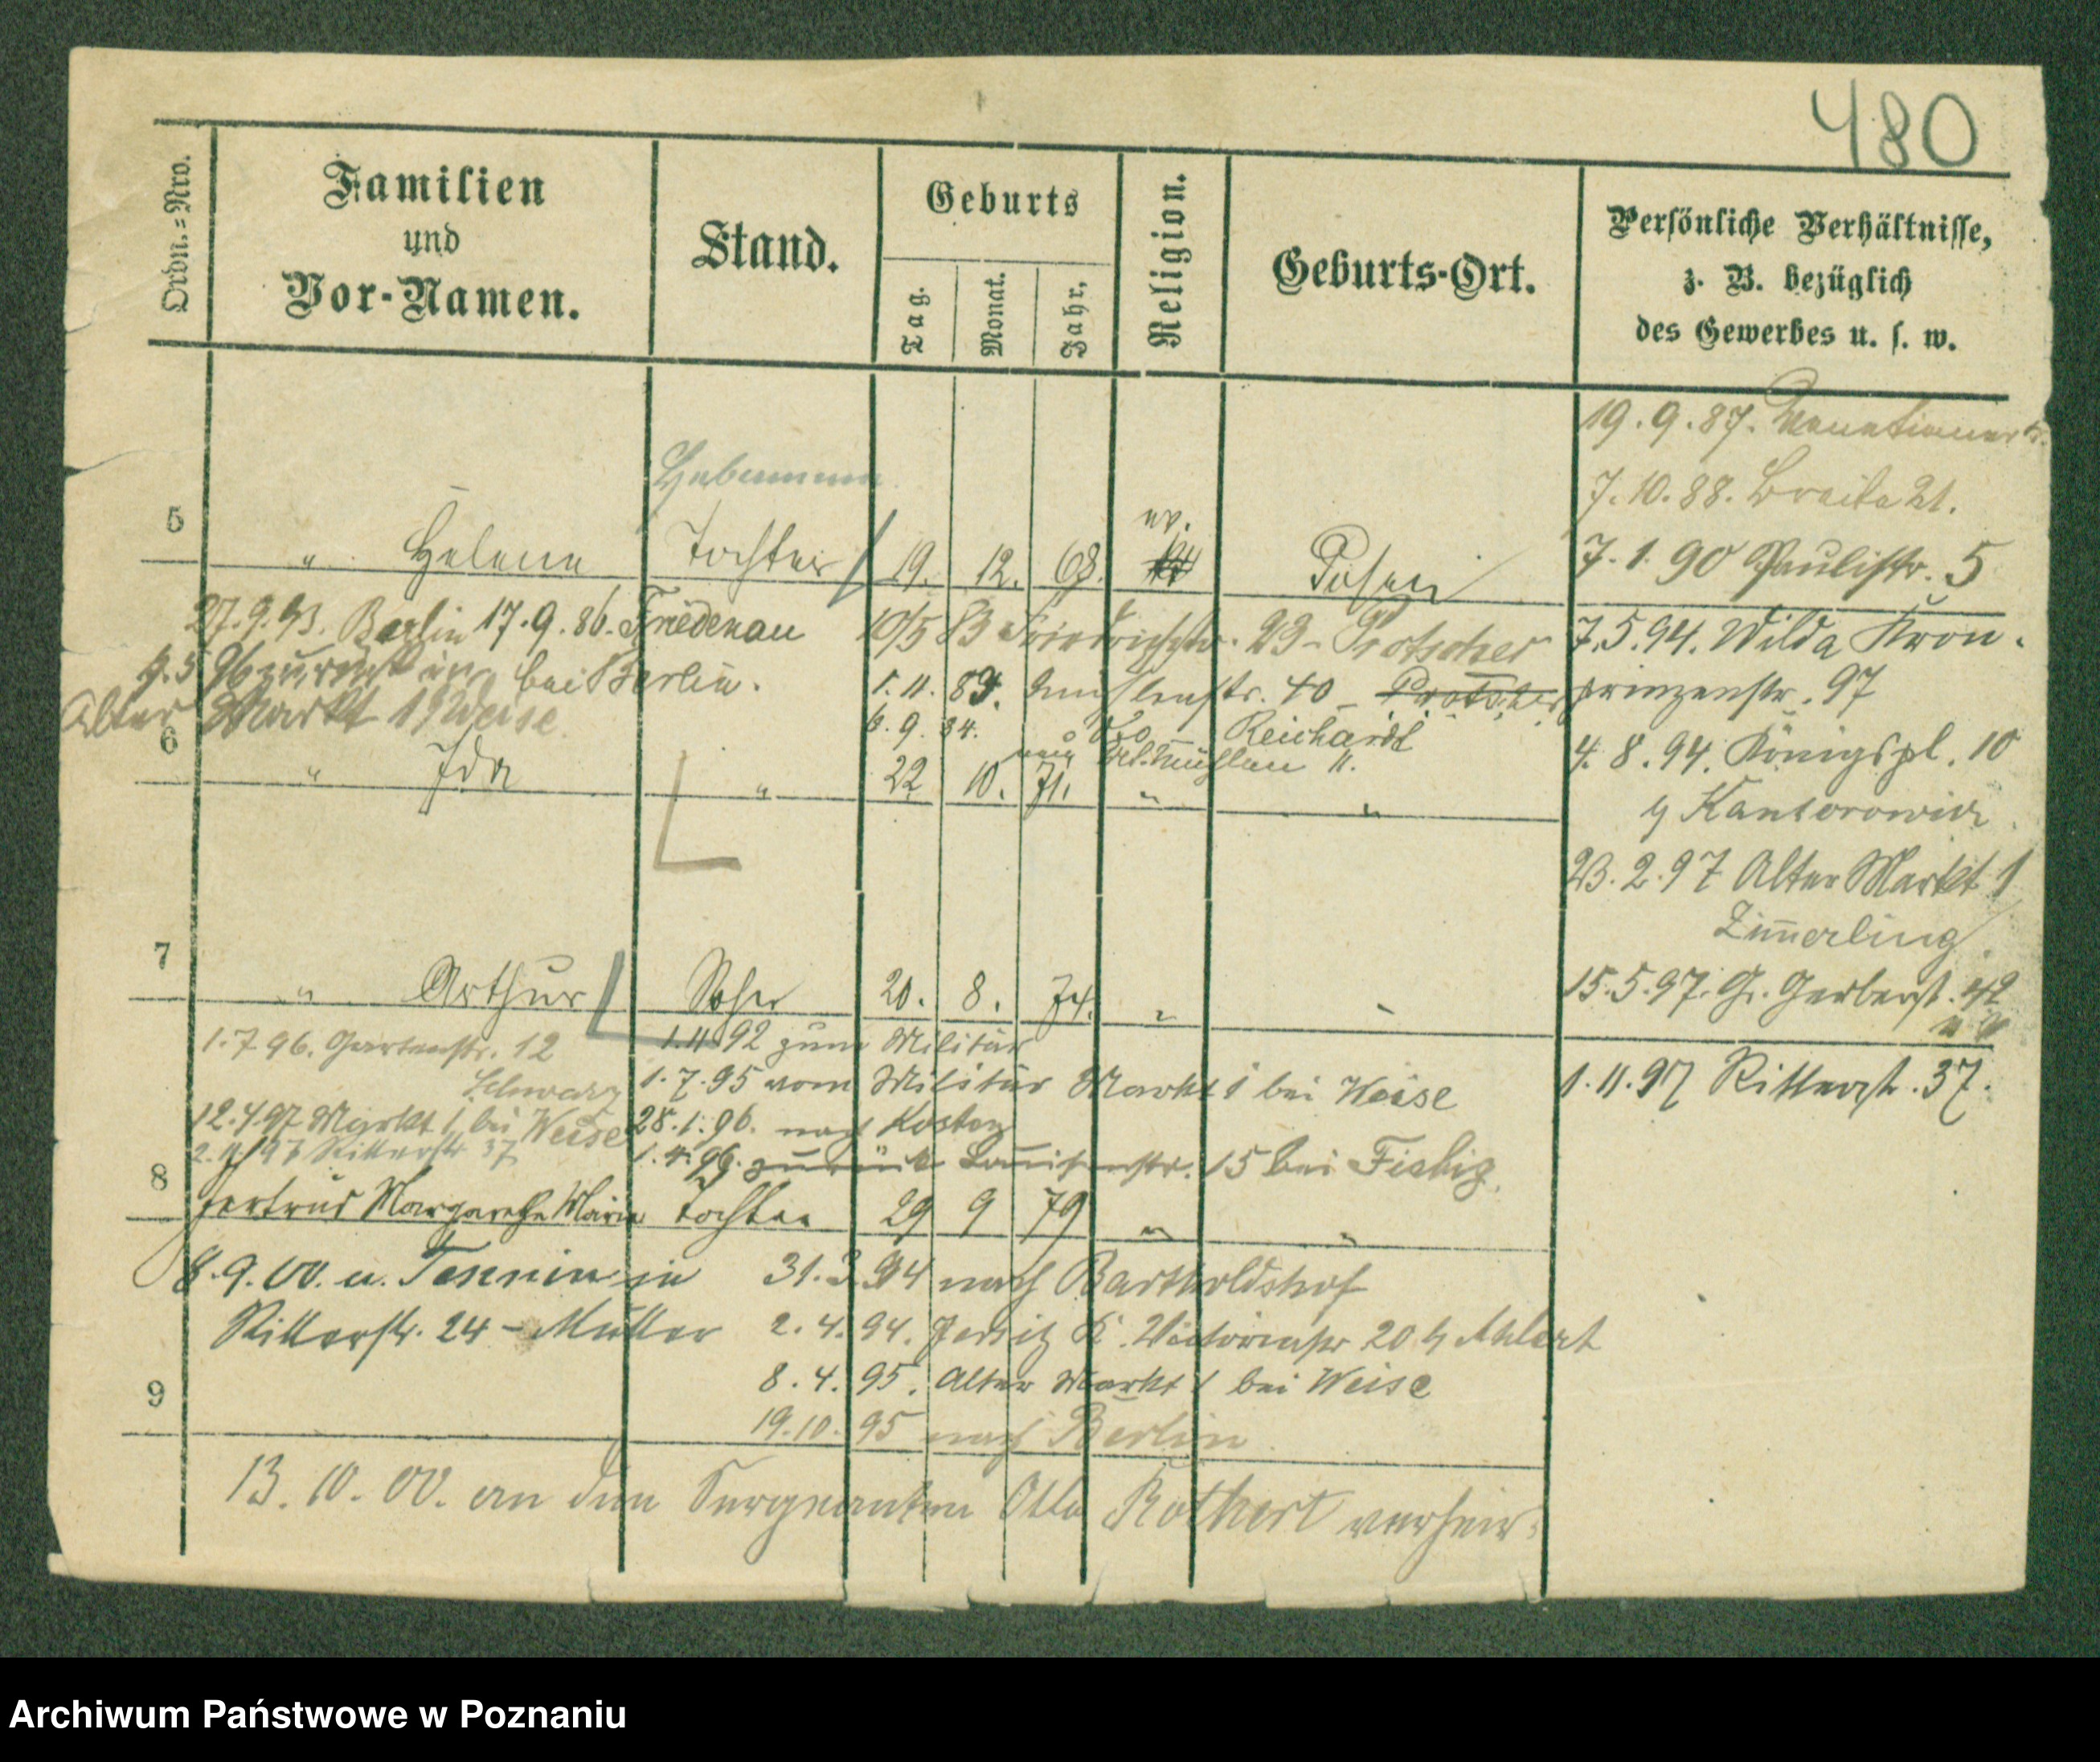 480
Ordn.=Nro.
Familien
und
Vor-Namen.
Stand.
Geburts
Tag.
Monat.
Jahr.
Religion.
Geburts-Ort.
Persönliche Verhältnisse,
z. B. bezüglich
des Gewerbes u. s. w.
19.9.87.
7.10.88. Breite 21.
7.1.90 Paulistr. 5
7.5.94. Wilda Kron-
prinzenstr. 97
4.8.94. Königspl. 10
Kantorowicz
23.2.97 Alter Markt 1
Zimerling
15.5.97. Gr. Gerberst. 42
1.11.97 Ritterst. 37.
Hebamme
5 " Helene Tochter 19. 12. 68. ev. Posen
27.9.93. Berlin 17.9.86. Friedenau
bei Berlin.
Alter Markt 1 Weise
10/5 83 Friedrichstr. 23 - Protscher
1.11. 89. Mühlenstr. 40
6.9.94. Reichardt
6 " Ida " 22 10. 71. " "
7 " Arthur Sohn 20. 8. 74. " "
1.7.96. Gartenstr. 12
Schwarz
12.4.97 Markt 1 bei Weise
2.11.97 Ritterstr. 37
1.11.92 zum Militär
1.7.95 vom Militär Markt 1 bei Weise
28.1.96. nach Kosten
1.4.96. zurück Louisenstr. 15 bei Fiebig.
8 Gertrud Margarethe Marie Tochter 29 9 79 " "
8.9.00. u.
Ritterstr. 24 - Mutter
31.3.94 nach Bartholdshof
2.4.94. Jersitz K. Victoriastr 20 Ahlert
8.4.95. Alter Markt 1 bei Weise
19.10.95 nach Berlin
9
13.10.00. an den Sergeanten Otto Rothert verheir.
Archiwum Państwowe w Poznaniu